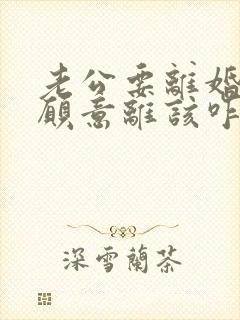 老公要離婚
願意離該咋
深雪蘭茶